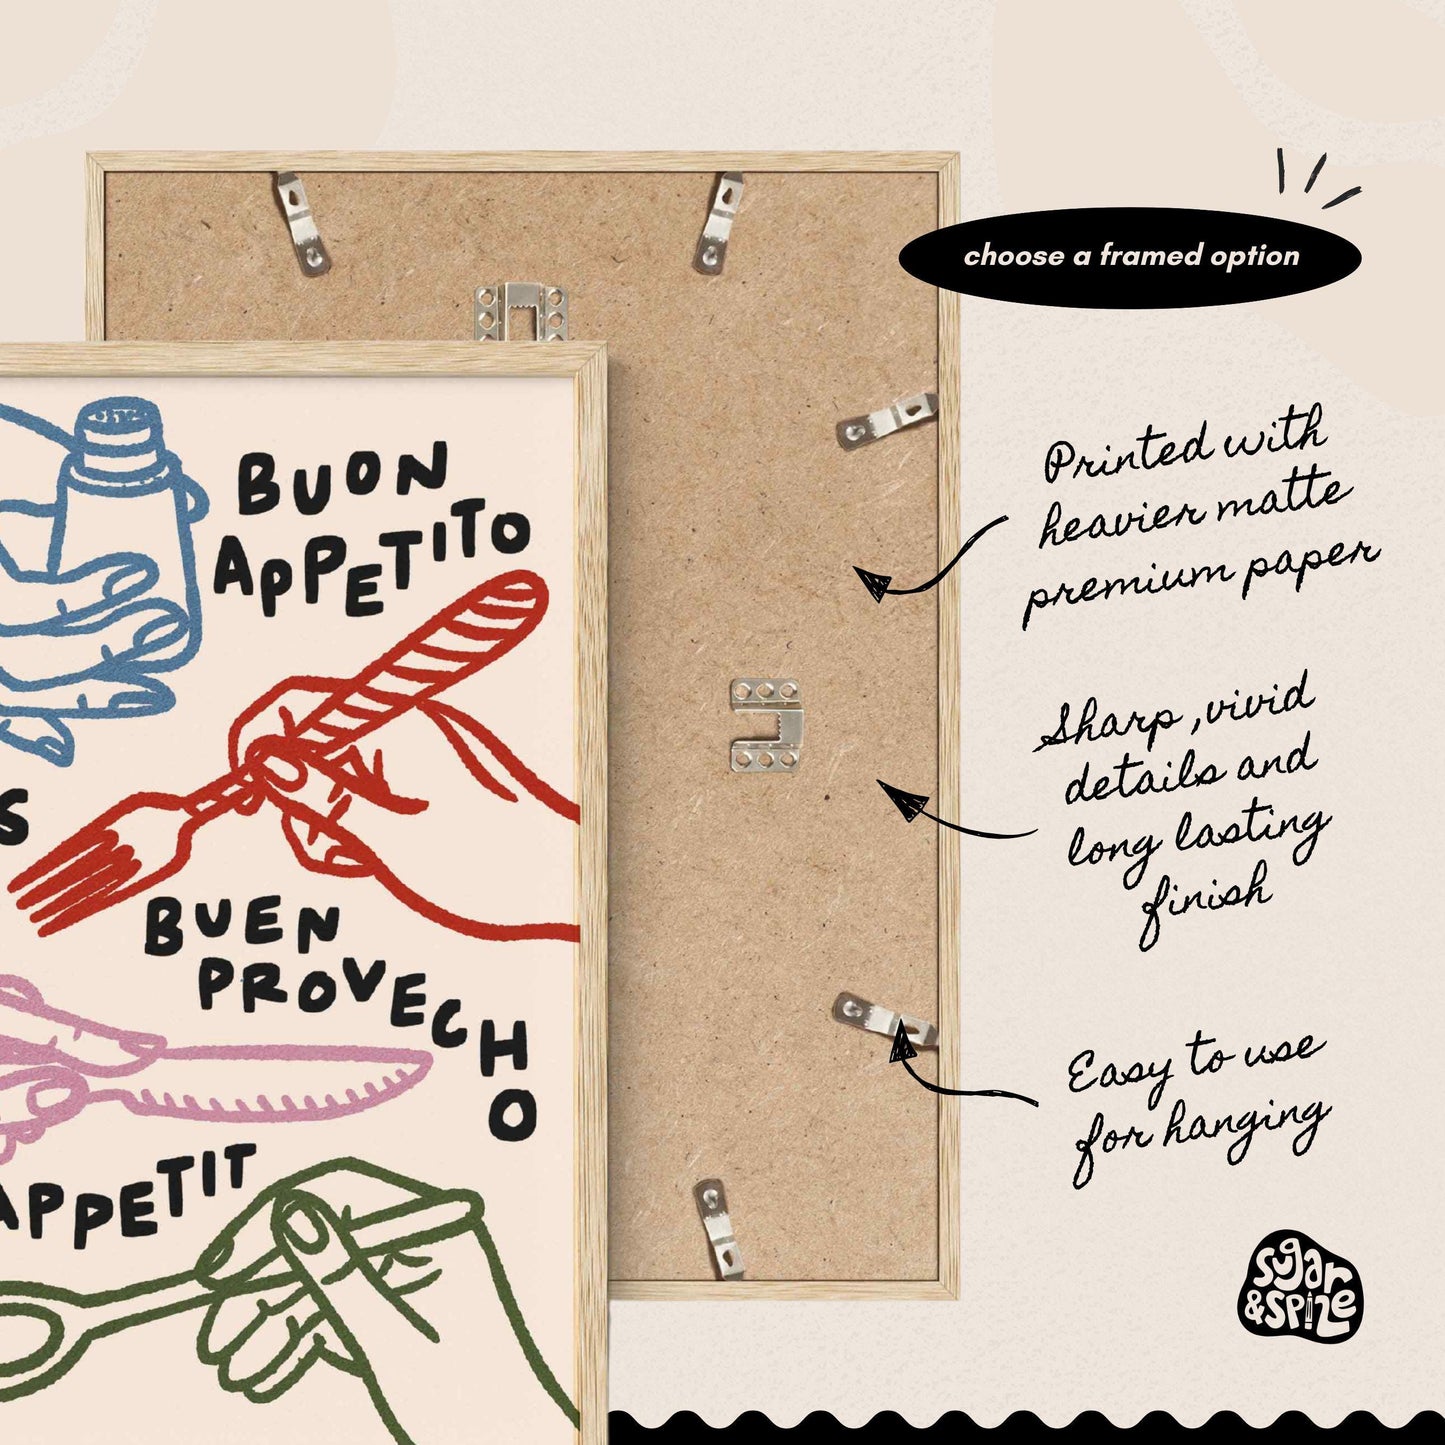 choose a framed option
Printed with
heavier matte
premium paper
Sharp ,vivid
details and
long lasting
finish
Easy to use
for hanging
BUON
APPETITO
S
BUEN
PROVECHO
APPETIT
sugar
&SPIZE